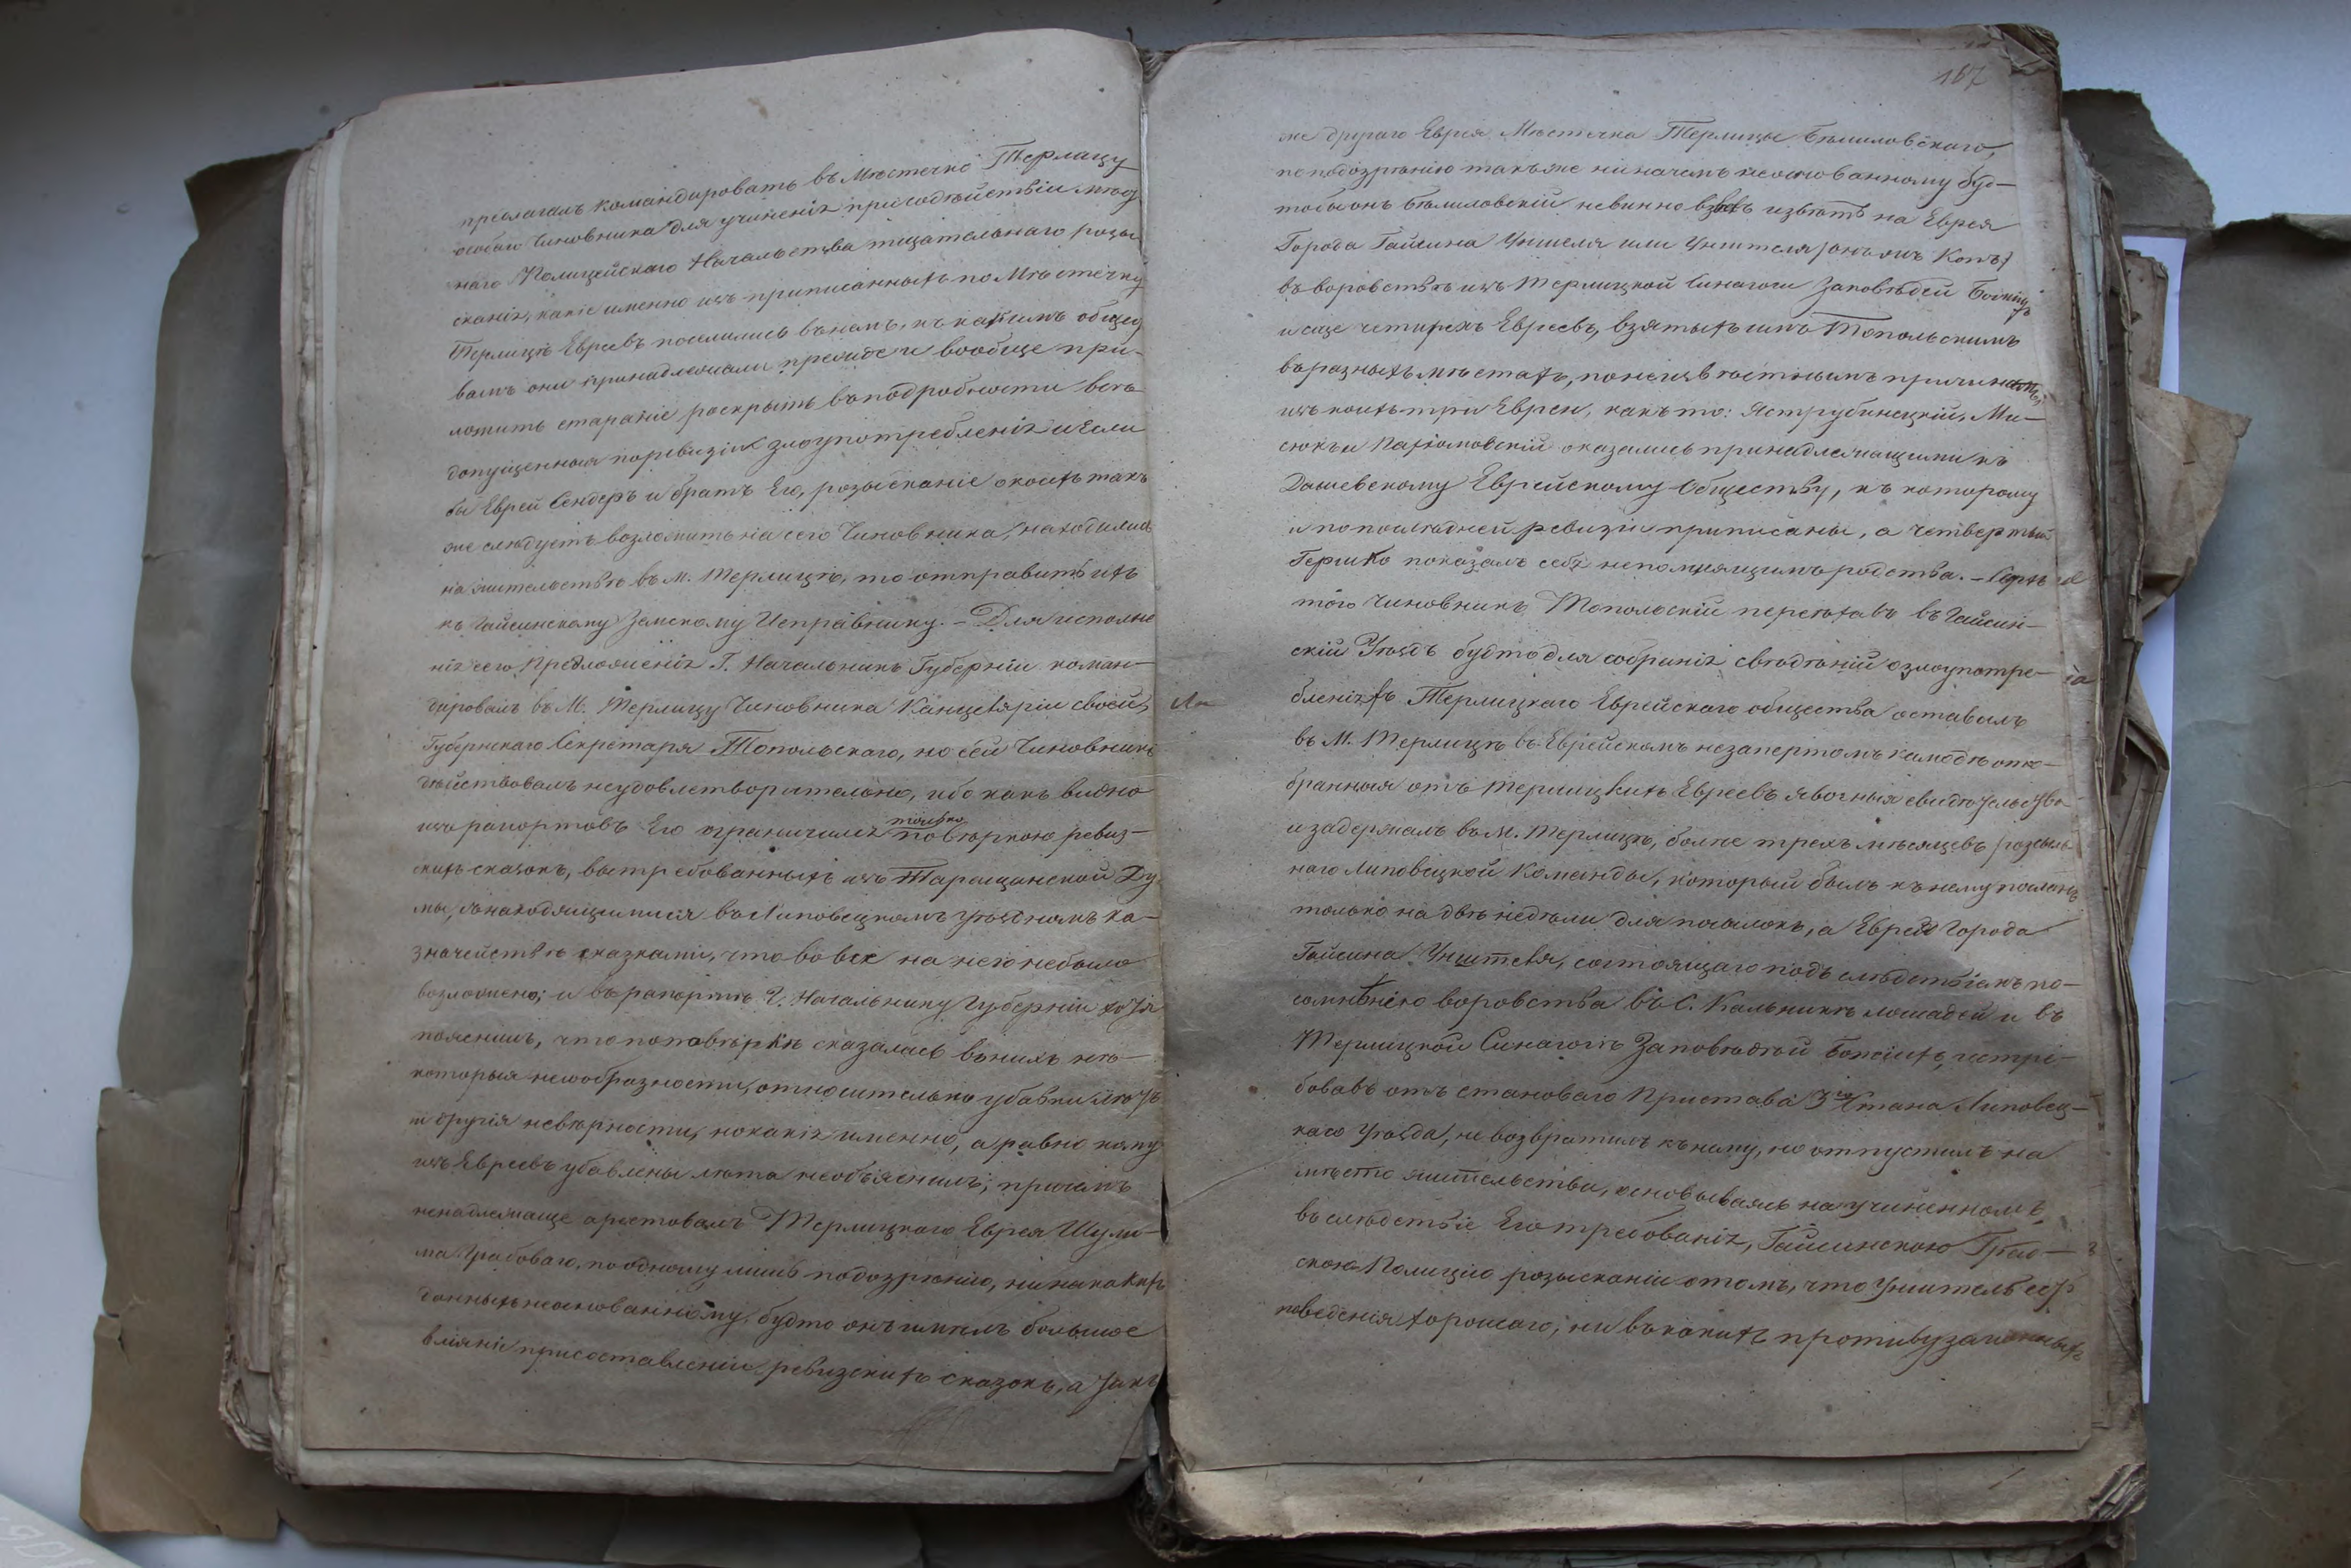 предлагалъ командировать въ Мѣстечко Терлицу
особаго Чиновника для учиненія при содѣйствіи мѣст
наго Полицейскаго Начальства тщательнаго розы
сканія, какіе именно изъ приписанныхъ по Мѣстечку
Терлицѣ Евреевъ поселились въ немъ, къ какимъ общес
вамъ они принадлежали прежде и вообще при-
ложить стараніе раскрыть въ подробности всѣ
допущенныя по ревизіи злоупотребленія и если
бы Еврей Сендеръ и братъ Его, розысканіе о коихъ такъ
же слѣдуетъ возложить на сего Чиновника, находились
на жительствѣ въ м. Терлицѣ, то отправить ихъ
къ Гайсинскому Земскому Исправнику. – Для исполне
нія сего Предложенія Г. Начальникъ Губерніи коман-
дировалъ въ М. Терлицу Чиновника Канцеляріи своей,
Губернскаго Секретаря Топольскаго, но сей Чиновникъ
дѣйствовалъ неудовлетворительно, ибо какъ видно
изъ рапортовъ Его ограничился только повѣркою ревиз-
скихъ сказокъ, вытребованныхъ изъ Таращанской Ду
мы, съ находящимися въ Липовецкомъ Уѣздномъ Ка-
значействѣ сказками, что вовсе на него небыло
возложено; и въ рапортѣ Г. Начальнику Губерніи хотя
пояснилъ, что по повѣркѣ оказалась въ нихъ нѣ-
которыя несообразности, относительно убавки лѣтъ
и другія невѣрности, но какія именно, а равно кому
изъ Евреевъ убавлены лѣта необъяснилъ; причемъ
ненадлежаще арестовалъ Терлицкаго Еврея Шулю-
ма Грабоваго, по одному лишь подозрѣнію, ни на какихъ
данныхъ неоснованному, будто онъ имѣлъ большое
вліяніе при составленіи ревизскихъ сказокъ, а такъ
167
же другаго Еврея Мѣстечка Терлицы Бѣлиловскаго,
по подозрѣнію также ни на чемъ неоснованному буд-
то бы онъ Бѣлиловскій невинно извѣтъ на Еврея
Города Гайсина Уншеля или Унштеля онъ же Копъ
въ воровствѣ изъ Терлицкой Синагоги Заповѣдей Божіихъ
и еще четырехъ Евреевъ, взятыхъ имъ Топольскимъ
въ разныхъ мѣстахъ, по неизвѣстнымъ причинамъ,
изъ коихъ три Еврея, какъ то: Яструбинецкій, Ми-
сюкъ и Пархомовскій оказались принадлежащими къ
Дашевскому Еврейскому Обществу, къ которому
и по послѣдней ревизіи приписаны, а четвертый
Гершко показалъ себя непомнящимъ родства. – Сверхъ
того Чиновникъ Топольскій переѣхавъ въ Гайсин-
скій Уѣздъ будто для собранія свѣдѣній о злоупотре-
бленіяхъ Терлицкаго Еврейскаго общества оставилъ
въ М. Терлицѣ въ Еврейскомъ незапертомъ комодѣ ото-
бранныя отъ Терлицкихъ Евреевъ явочныя свидѣтельства
и задержалъ въ М. Терлицѣ, более трехъ мѣсяцевъ розсыль
наго Липовецкой Команды, который былъ къ нему посланъ
только на двѣ недѣли для посылокъ, а Еврея Города
Гайсина Унштеля, состоящаго подъ слѣдствіемъ по-
сомнѣнію воровства въ С. Кальникѣ лошадей и въ
Терлицкой Синагогѣ Заповѣдей Божіихъ, истре-
бовавъ отъ становаго Пристава 3го Стана Липовец-
каго Уѣзда, не возвратилъ къ нему, но отпустилъ на
мѣсто жительства, основываясь на учиненномъ,
въ слѣдствіе Его требованія, Гайсинскою Град-
скою Полиціею розысканіи о томъ, что Унштель есть
поведенія хорошаго; ни въ какихъ противузаконныхъ